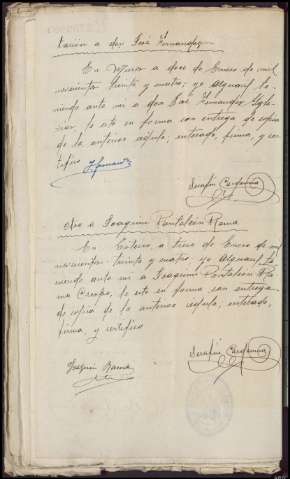 Citación a don José Fernandez
En Muros a doce de Enero de mil
novecientos treinta y cuatro; yo Alguacil te-
niendo ante mi a don José Fernandez Igle-
sias, lo cité en forma con entrega de copia
de la anterior cédula; enterado, firma, y cer-
tifico
J Fernandez
Serafin
Otra a Joaquin Pantaleón Rama
En Esteiro, a trece de Enero de mil
novecientos treinta y cuatro, yo Alguacil te-
niendo ante mi a Joaquin Pantaleón Ra-
ma Crespo, lo cité en forma con entrega
de copia de la anterior cedula; enterado,
firma, y certifico
Joaquin Rama
Serafin